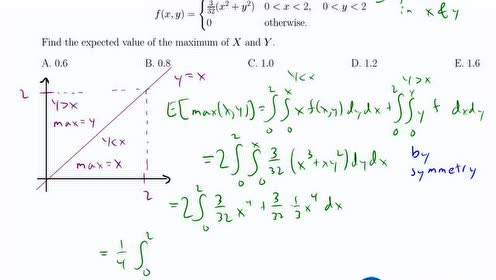 in x & y
f(x, y) = { 3/32 (x² + y²) 0 < x < 2, 0 < y < 2
0 otherwise.
Find the expected value of the maximum of X and Y.
A. 0.6 B. 0.8 C. 1.0 D. 1.2 E. 1.6
y = x
2
y>x
max=y
y<x
max=x
2
y<x y>x
E[max(x,y)] = ∫₀² ∫₀ˣ x f(x,y) dy dx + ∫₀² ∫₀ʸ y f dx dy
= 2 ∫₀² ∫₀ˣ 3/32 (x³ + xy²) dy dx
by
symmetry
= 2 ∫₀² 3/32 x⁴ + 3/32 · 1/3 x⁴ dx
= 1/4 ∫₀²